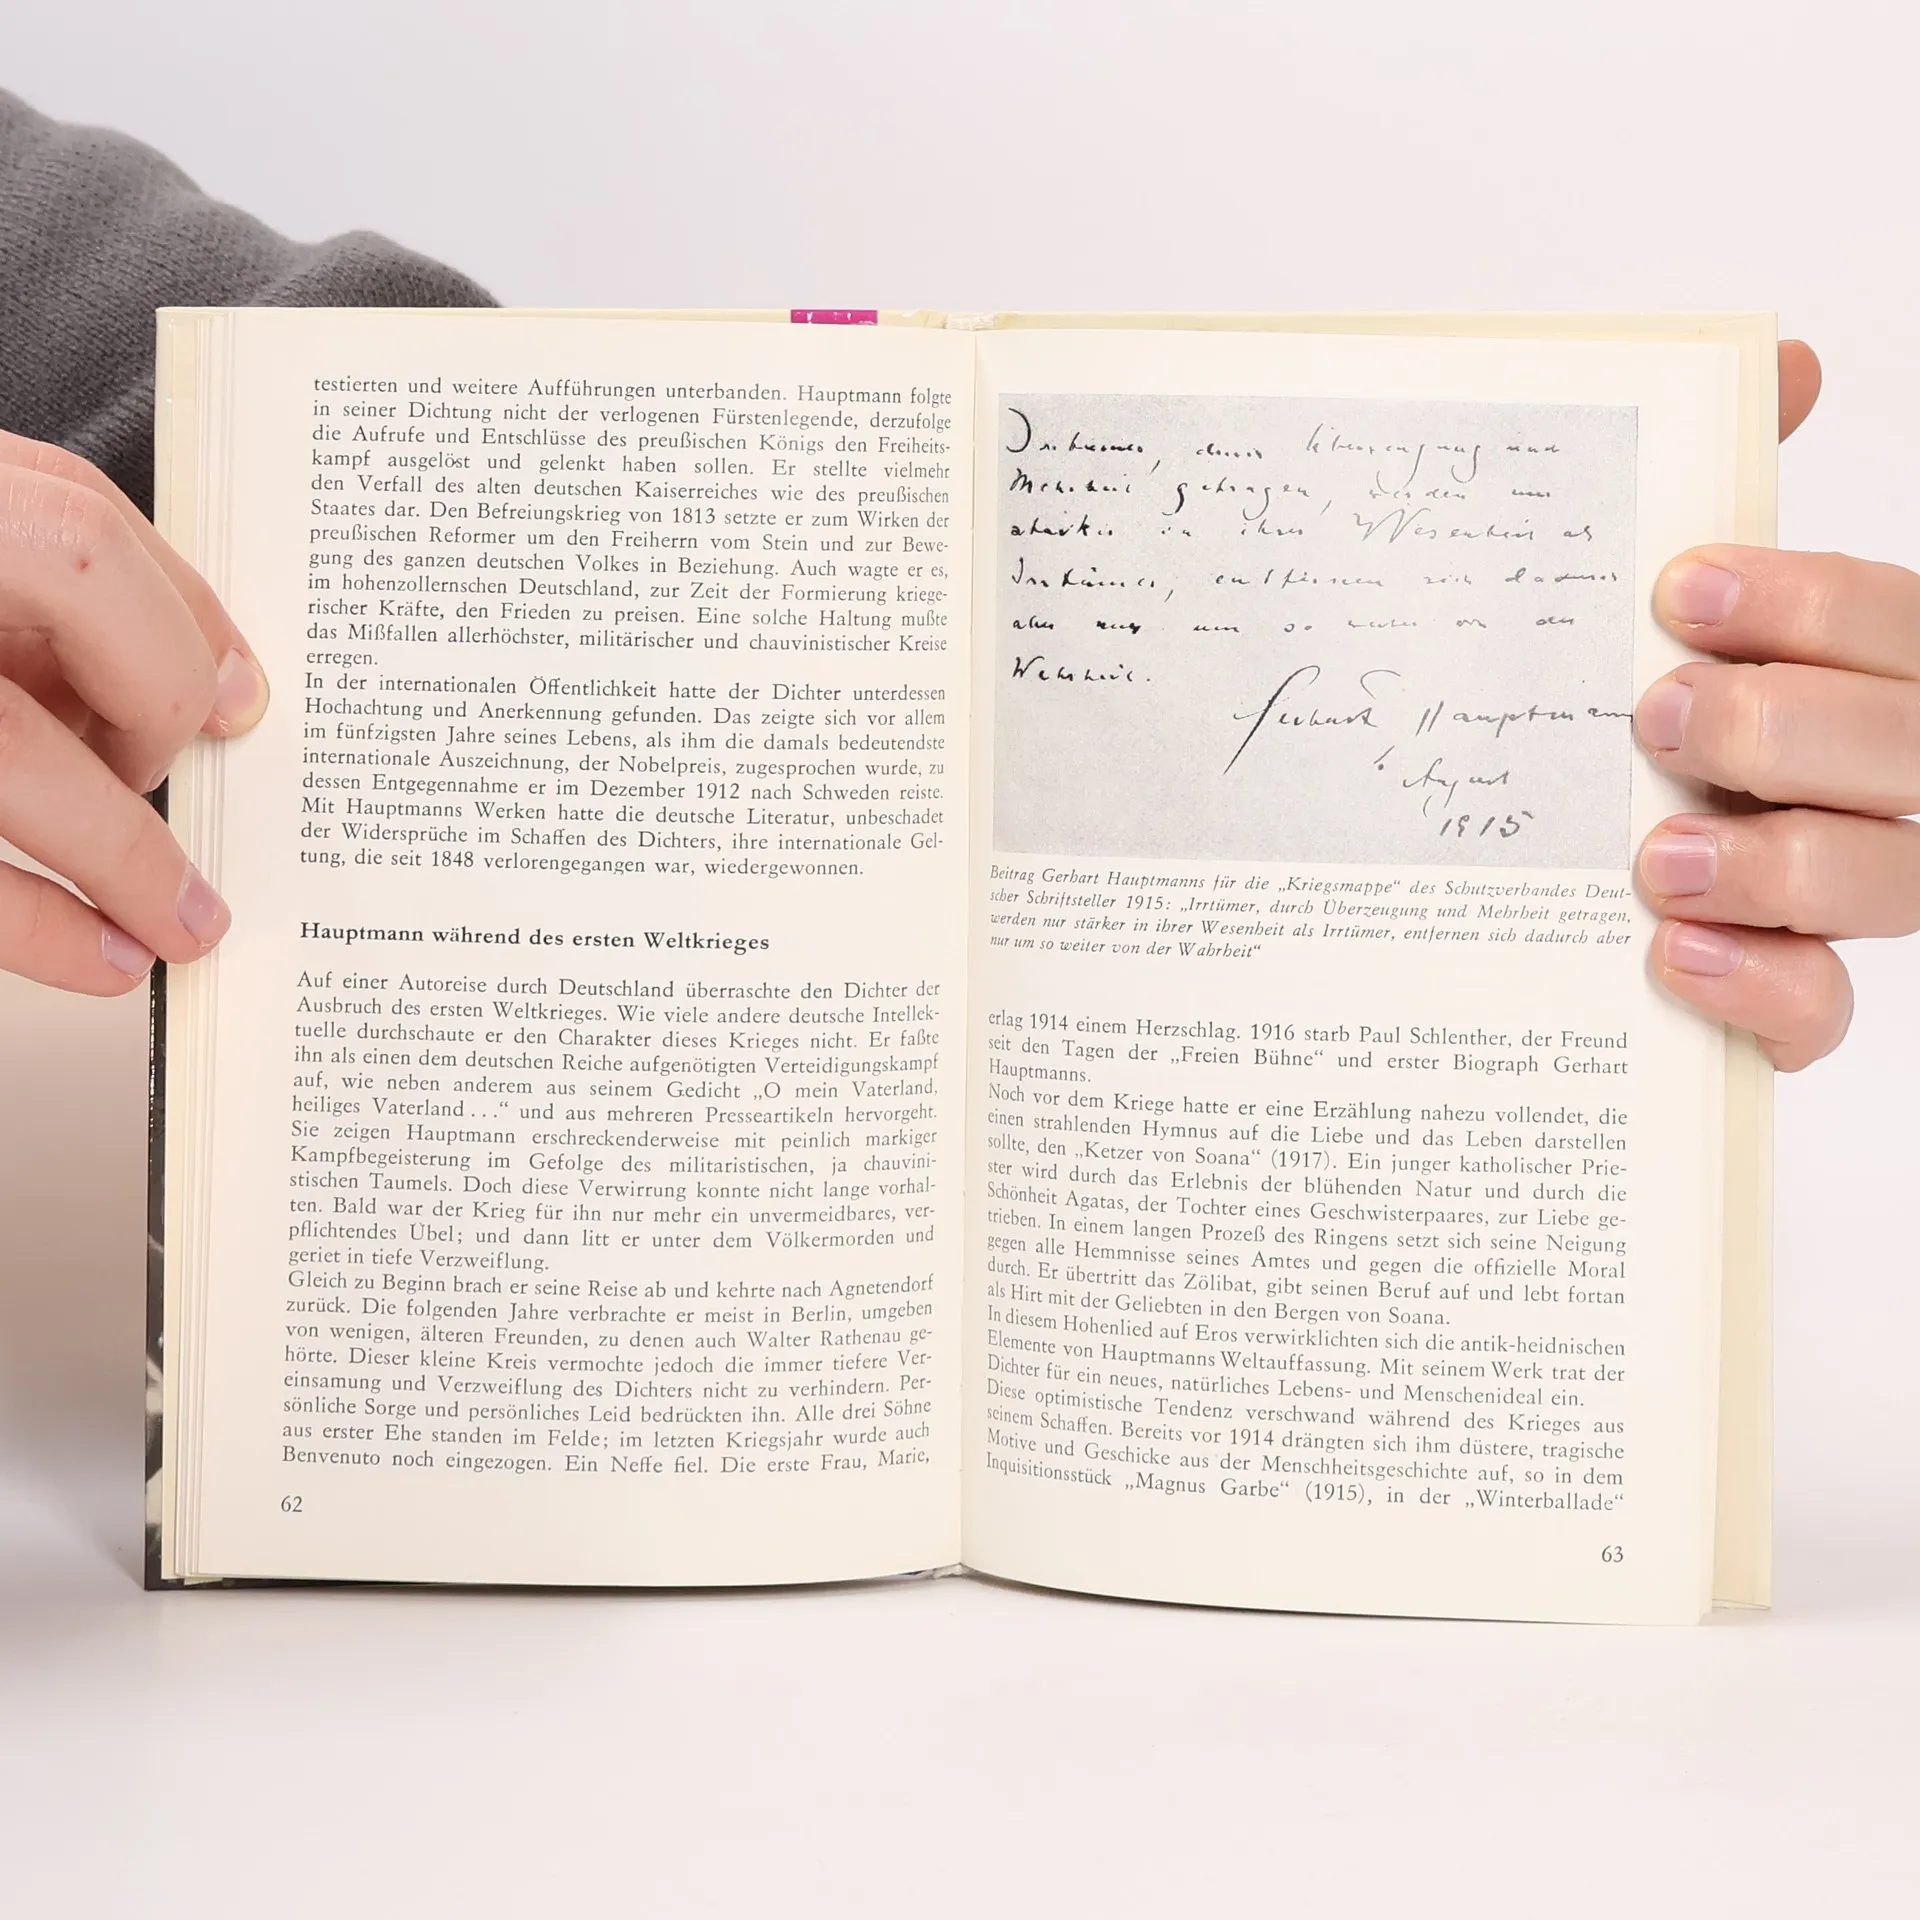 testierten und weitere Aufführungen unterbanden. Hauptmann folgte
in seiner Dichtung nicht der verlogenen Fürstenlegende, derzufolge
die Aufrufe und Entschlüsse des preußischen Königs den Freiheits-
kampf ausgelöst und gelenkt haben sollen. Er stellte vielmehr
den Verfall des alten deutschen Kaiserreiches wie des preußischen
Staates dar. Den Befreiungskrieg von 1813 setzte er zum Wirken der
preußischen Reformer um den Freiherrn vom Stein und zur Bewe-
gung des ganzen deutschen Volkes in Beziehung. Auch wagte er es,
im hohenzollernschen Deutschland, zur Zeit der Formierung kriege-
rischer Kräfte, den Frieden zu preisen. Eine solche Haltung mußte
das Mißfallen allerhöchster, militärischer und chauvinistischer Kreise
erregen.
In der internationalen Öffentlichkeit hatte der Dichter unterdessen
Hochachtung und Anerkennung gefunden. Das zeigte sich vor allem
im fünfzigsten Jahre seines Lebens, als ihm die damals bedeutendste
internationale Auszeichnung, der Nobelpreis, zugesprochen wurde, zu
dessen Entgegennahme er im Dezember 1912 nach Schweden reiste.
Mit Hauptmanns Werken hatte die deutsche Literatur, unbeschadet
der Widersprüche im Schaffen des Dichters, ihre internationale Gel-
tung, die seit 1848 verlorengegangen war, wiedergewonnen.
Hauptmann während des ersten Weltkrieges
Auf einer Autoreise durch Deutschland überraschte den Dichter der
Ausbruch des ersten Weltkrieges. Wie viele andere deutsche Intellek-
tuelle durchschaute er den Charakter dieses Krieges nicht. Er faßte
ihn als einen dem deutschen Reiche aufgenötigten Verteidigungskampf
auf, wie neben anderem aus seinem Gedicht „O mein Vaterland,
heiliges Vaterland ...“ und aus mehreren Presseartikeln hervorgeht.
Sie zeigen Hauptmann erschreckenderweise mit peinlich markiger
Kampfbegeisterung im Gefolge des militaristischen, ja chauvini-
stischen Taumels. Doch diese Verwirrung konnte nicht lange vorhal-
ten. Bald war der Krieg für ihn nur mehr ein unvermeidbares, ver-
pflichtendes Übel; und dann litt er unter dem Völkermorden und
geriet in tiefe Verzweiflung.
Gleich zu Beginn brach er seine Reise ab und kehrte nach Agnetendorf
zurück. Die folgenden Jahre verbrachte er meist in Berlin, umgeben
von wenigen, älteren Freunden, zu denen auch Walter Rathenau ge-
hörte. Dieser kleine Kreis vermochte jedoch die immer tiefere Ver-
einsamung und Verzweiflung des Dichters nicht zu verhindern. Per-
sönliche Sorge und persönliches Leid bedrückten ihn. Alle drei Söhne
aus erster Ehe standen im Felde; im letzten Kriegsjahr wurde auch
Benvenuto noch eingezogen. Ein Neffe fiel. Die erste Frau, Marie,
62
Irrtümer, durch Überzeugung und
Mehrheit getragen, werden nur
stärker in ihrer Wesenheit als
Irrtümer, entfernen sich dadurch
aber nur um so weiter von der
Wahrheit.
Gerhart Hauptmann
6. August
1915
Beitrag Gerhart Hauptmanns für die „Kriegsmappe“ des Schutzverbandes Deut-
scher Schriftsteller 1915: „Irrtümer, durch Überzeugung und Mehrheit getragen,
werden nur stärker in ihrer Wesenheit als Irrtümer, entfernen sich dadurch aber
nur um so weiter von der Wahrheit“
erlag 1914 einem Herzschlag. 1916 starb Paul Schlenther, der Freund
seit den Tagen der „Freien Bühne“ und erster Biograph Gerhart
Hauptmanns.
Noch vor dem Kriege hatte er eine Erzählung nahezu vollendet, die
einen strahlenden Hymnus auf die Liebe und das Leben darstellen
sollte, den „Ketzer von Soana“ (1917). Ein junger katholischer Prie-
ster wird durch das Erlebnis der blühenden Natur und durch die
Schönheit Agatas, der Tochter eines Geschwisterpaares, zur Liebe ge-
trieben. In einem langen Prozeß des Ringens setzt sich seine Neigung
gegen alle Hemmnisse seines Amtes und gegen die offizielle Moral
durch. Er übertritt das Zölibat, gibt seinen Beruf auf und lebt fortan
als Hirt mit der Geliebten in den Bergen von Soana.
In diesem Hohenlied auf Eros verwirklichten sich die antik-heidnischen
Elemente von Hauptmanns Weltauffassung. Mit seinem Werk trat der
Dichter für ein neues, natürliches Lebens- und Menschenideal ein.
Diese optimistische Tendenz verschwand während des Krieges aus
seinem Schaffen. Bereits vor 1914 drängten sich ihm düstere, tragische
Motive und Geschicke aus der Menschheitsgeschichte auf, so in dem
Inquisitionsstück „Magnus Garbe“ (1915), in der „Winterballade“
63